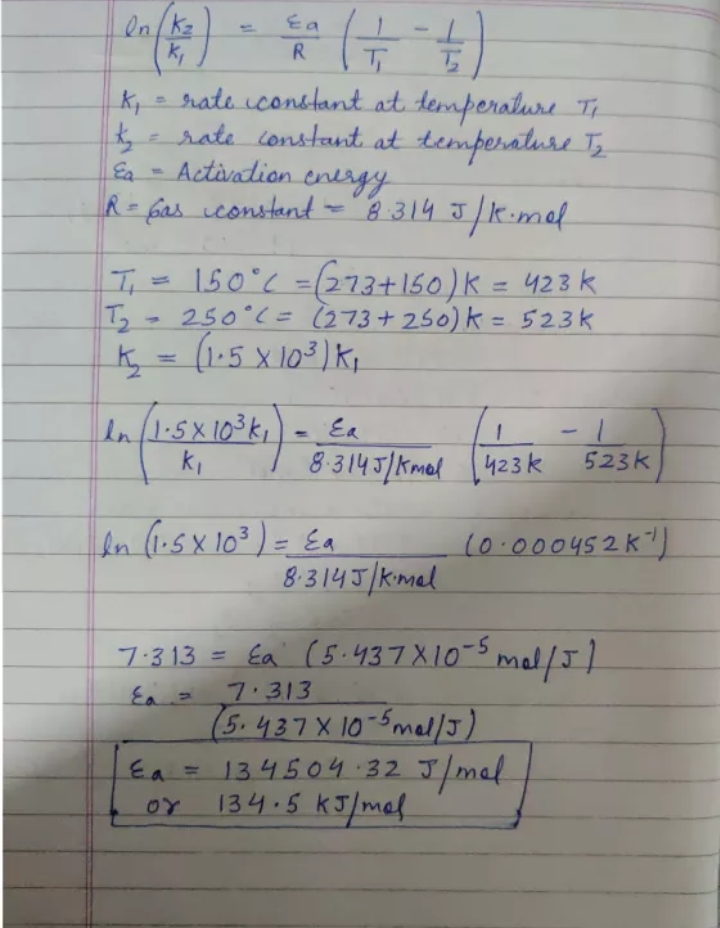 ln(K2/K1) = Ea/R (1/T1 - 1/T2)
K1 = rate constant at temperature T1
K2 = rate constant at temperature T2
Ea = Activation energy
R = Gas constant = 8.314 J/K.mol
T1 = 150°C = (273+150)K = 423K
T2 = 250°C = (273+250)K = 523K
K2 = (1.5 x 10^3) K1
ln(1.5 x 10^3 K1/K1) = Ea/8.314 J/Kmol (1/423K - 1/523K)
ln (1.5 x 10^3) = Ea/8.314 J/K.mol (0.000452 K^-1)
7.313 = Ea (5.437 x 10^-5 mol/J)
Ea = 7.313/(5.437 x 10^-5 mol/J)
Ea = 134504.32 J/mol
or 134.5 kJ/mol